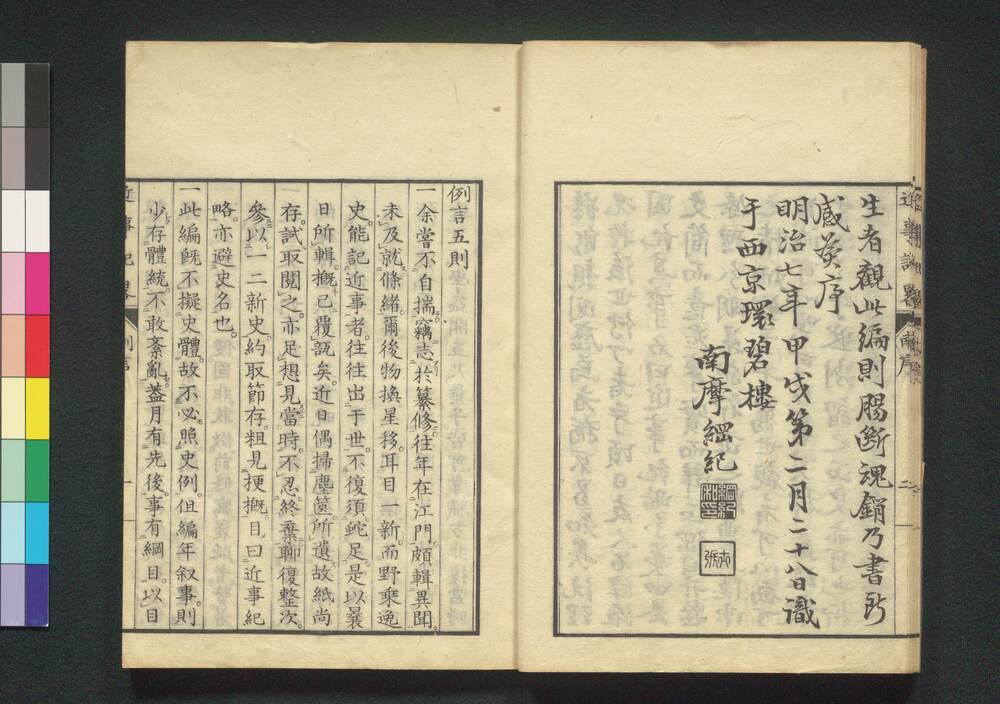 生者觀此編則腸斷魂銷乃書所
感爲序
明治七年甲戌第二月二十八日識
于西京環碧樓
南摩綱紀
近事記畧
南序
二
例言五則
一余嘗不自揣竊志於纂修往年在江門頗輯異聞
未及就條緒爾後物換星移耳目一新而野乘逸
史能記近事者往往出于世不復須蛇足是以曩
日所輯概已覆瓿矣近日偶掃塵篋所遺故紙尚
存試取閱之亦足想見當時不忍終棄聊復整次
參以一二新史約取節存粗見梗概目曰近事紀
略亦避史名也
一此編旣不擬史體故不必照史例但編年叙事則
少存體統不敢紊亂蓋月有先後事有綱目以目
近事紀畧
例言
一